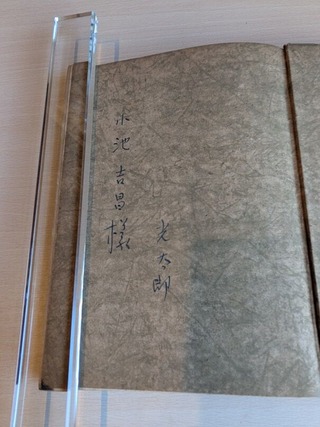 水池吉昌様
光太郎